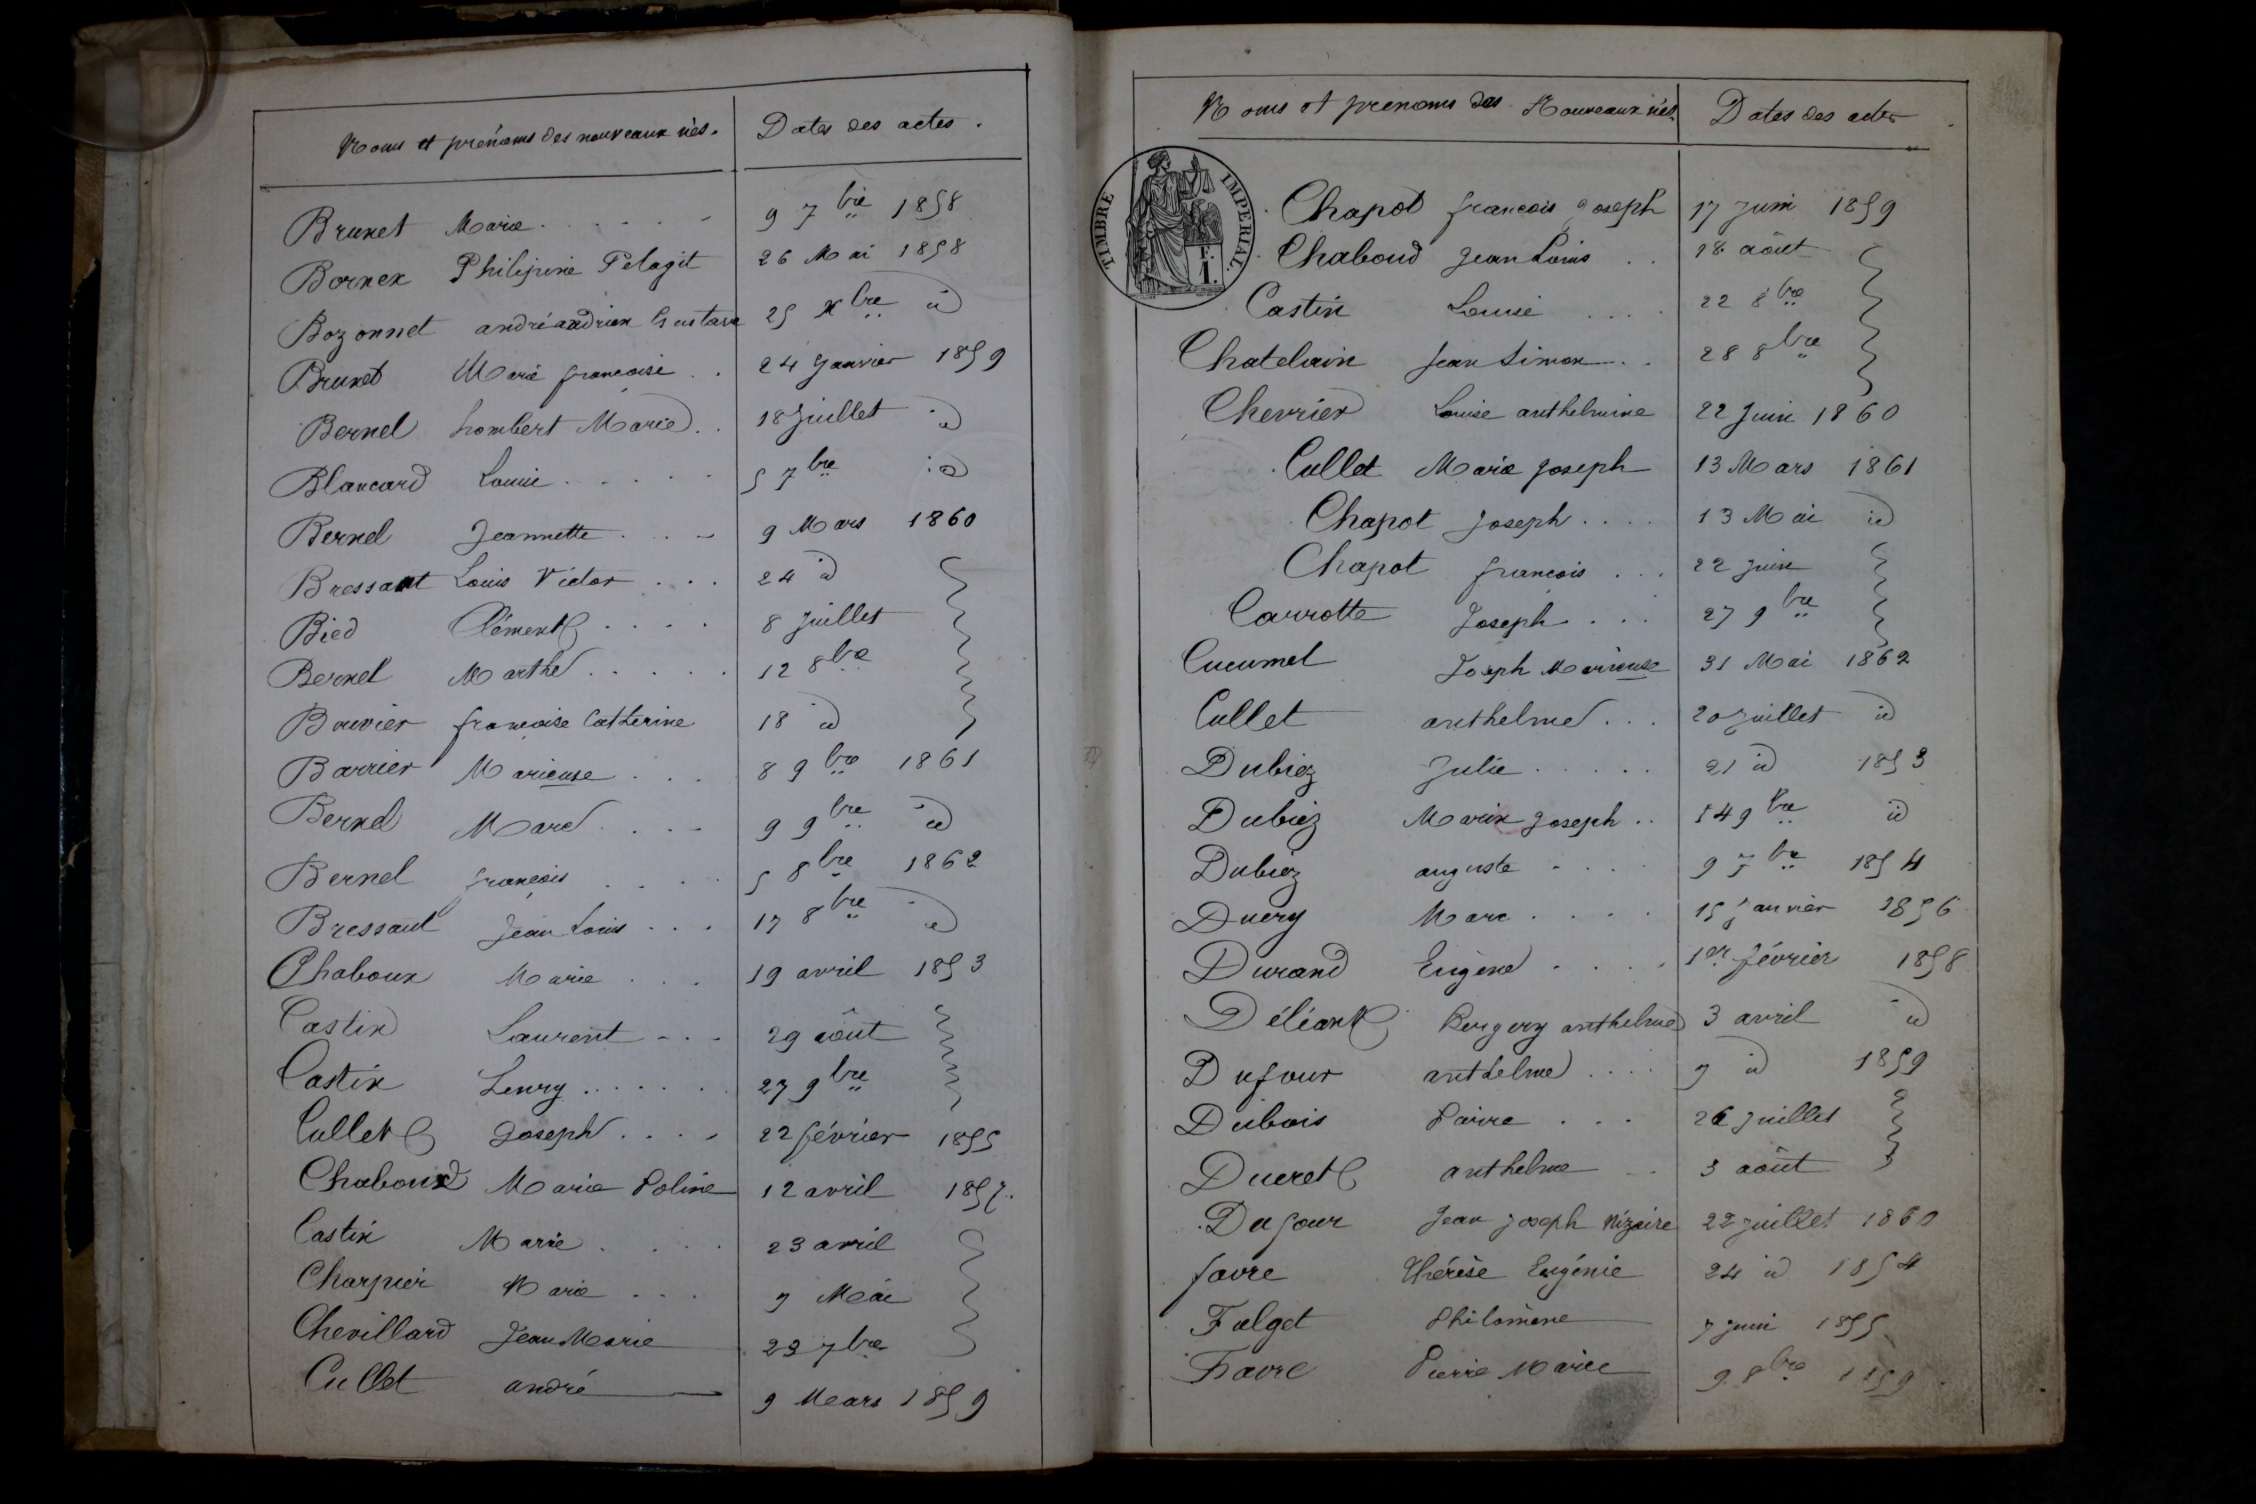 Noms et prénoms des nouveaux nés. Dates des actes.
Brunet Marie 9 7bre 1858
Bornex Philipine Pelagit 26 Mai 1858
Bozonnet andré andrien Gustave 25 Xbre id
Brunet Marie francoise 24 Janvier 1859
Bernel hombert Marie 18 Juillet id
Blancard Louise 5 7bre id
Bernel Jeannette 9 Mars 1860
Bressant Louis Victor 24 id
Bied Clément 8 Juillet
Bernel Marthe 12 8bre
Bouvier francoise Catherine 18 id
Barrier Marieuse 8 9bre 1861
Bernel Marc 9 9bre id
Bernel françois 5 8bre 1862
Bressant Jean Louis 17 8bre id
Chaboux Marie 19 avril 1853
Castin Laurent 29 août
Castin henry 27 9bre
Cullet Joseph 22 février 1855
Chaboud Marie Poline 12 avril 1857.
Castin Marie 23 avril
Charpier Marie 7 Mai
Chevillard Jean Marie 23 7bre
Cullet andré 9 Mars 1859
Noms et prenoms des Nouveaux nés. Dates des actes
TIMBRE IMPERIAL.
F.
1.
Chapot francois Joseph 17 Juin 1859
Chaboud Jean Louis 18 août
Castin Louise 22 8bre
Chatelain Jean Simon 28 8bre
Chevrier Louise anthelmine 22 Juin 1860
Cullet Marie Joseph 13 Mars 1861
Chapot Joseph 13 Mai id
Chapot francois 22 Juin
Carrotte Joseph 27 9bre
Cucumel Joseph Marieuse 31 Mai 1862
Cullet anthelme 20 Juillet id
Dubiez Julie 21 id 1853
Dubiez Marie Joseph 14 9bre id
Dubiez auguste 9 7bre 1854
Duery Marc 15 Janvier 1856
Durand Eugène 1er février 1858
Déliant Bergery anthelme 3 avril id
Dufour anthelme 7 id 1859
Dubois Pairre 26 Juillet
Dueret anthelme 3 août
Dufour Jean Joseph Nizaire 22 Juillet 1860
favre Thérèse Eugénie 24 id 1854
Falget Philomène 7 Juin 1855
Favre Pierre Marie 9 8bre 1859